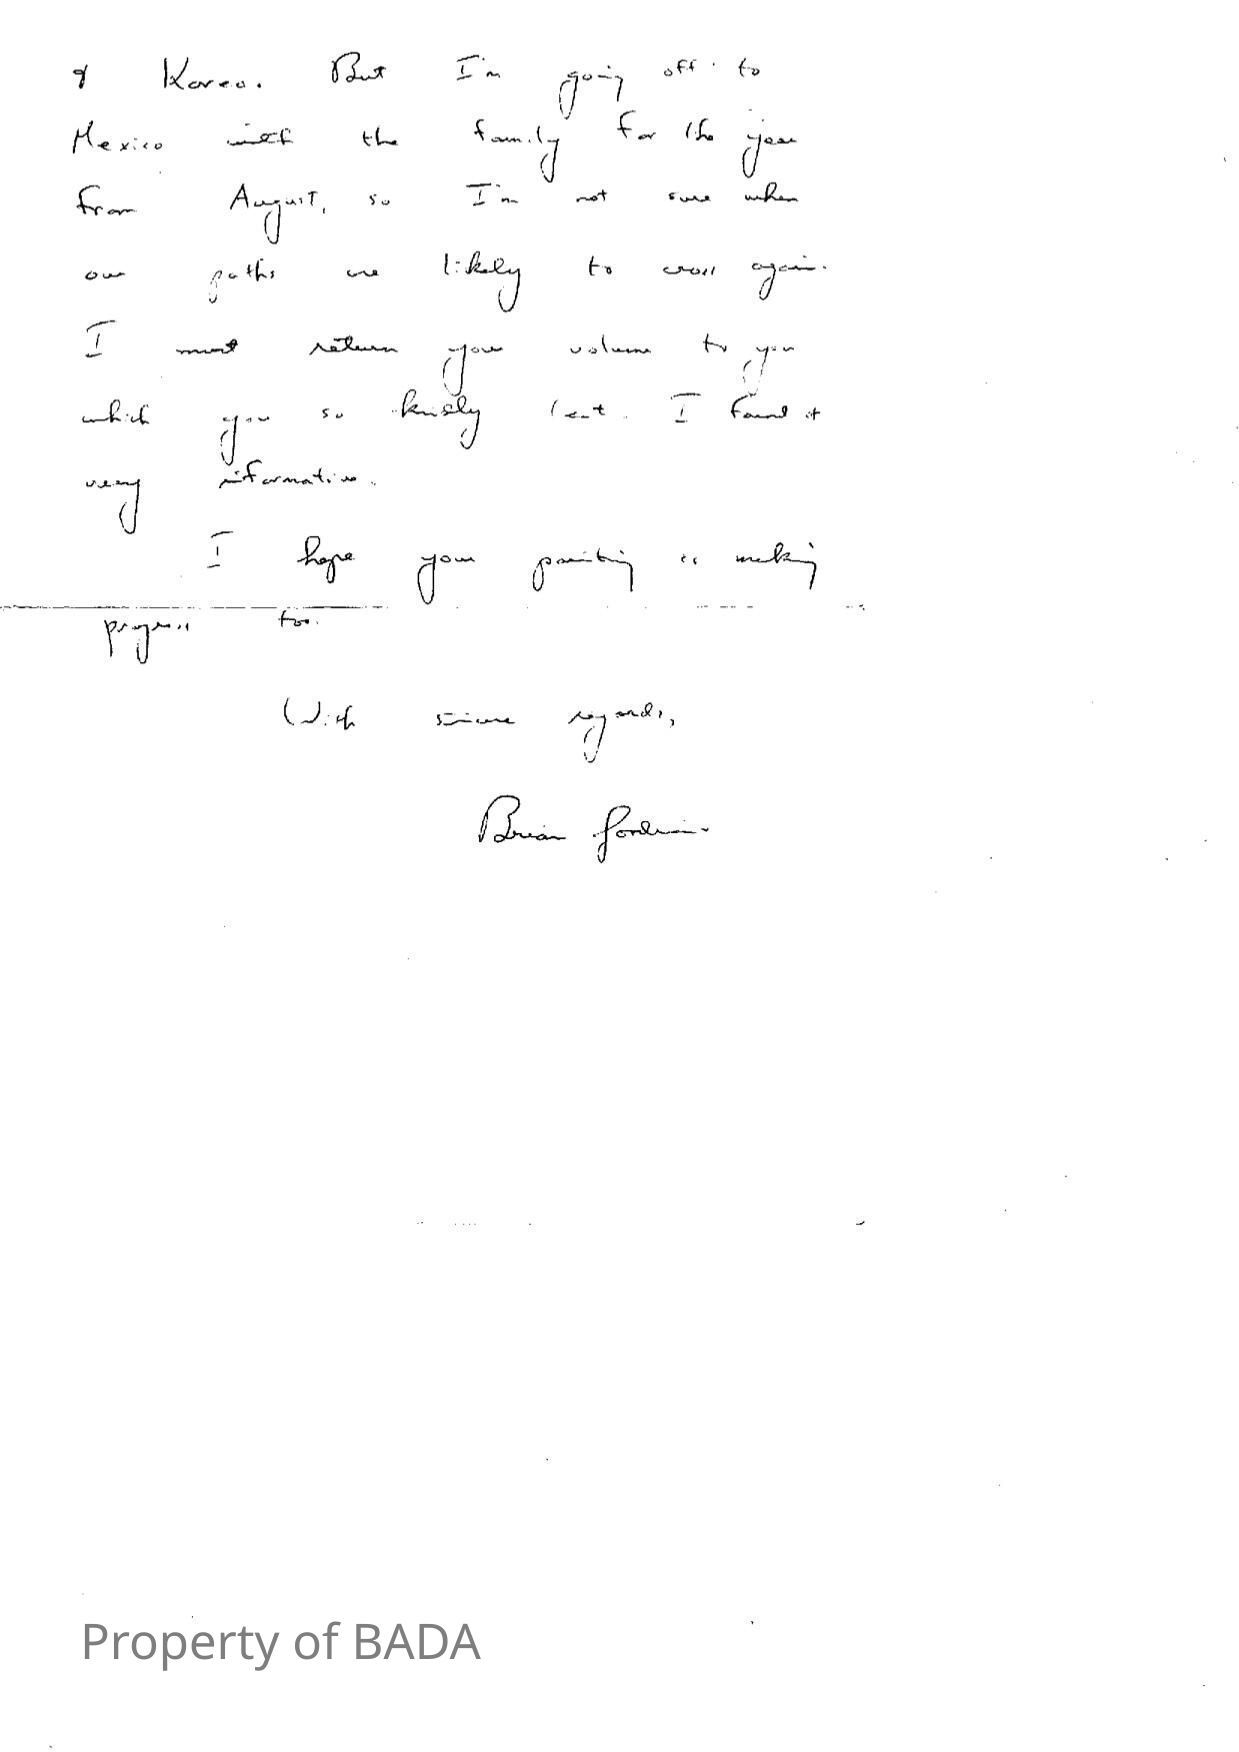 & Korea. But I'm going off to
Mexico with the family for the year
from August, so I'm not sure when
our paths are likely to cross again.
I must return your volume to you
which you so kindly lent. I found it
very informative.
I hope your painting is making
progress too.
With sincere regards,
Brian
Property of BADA